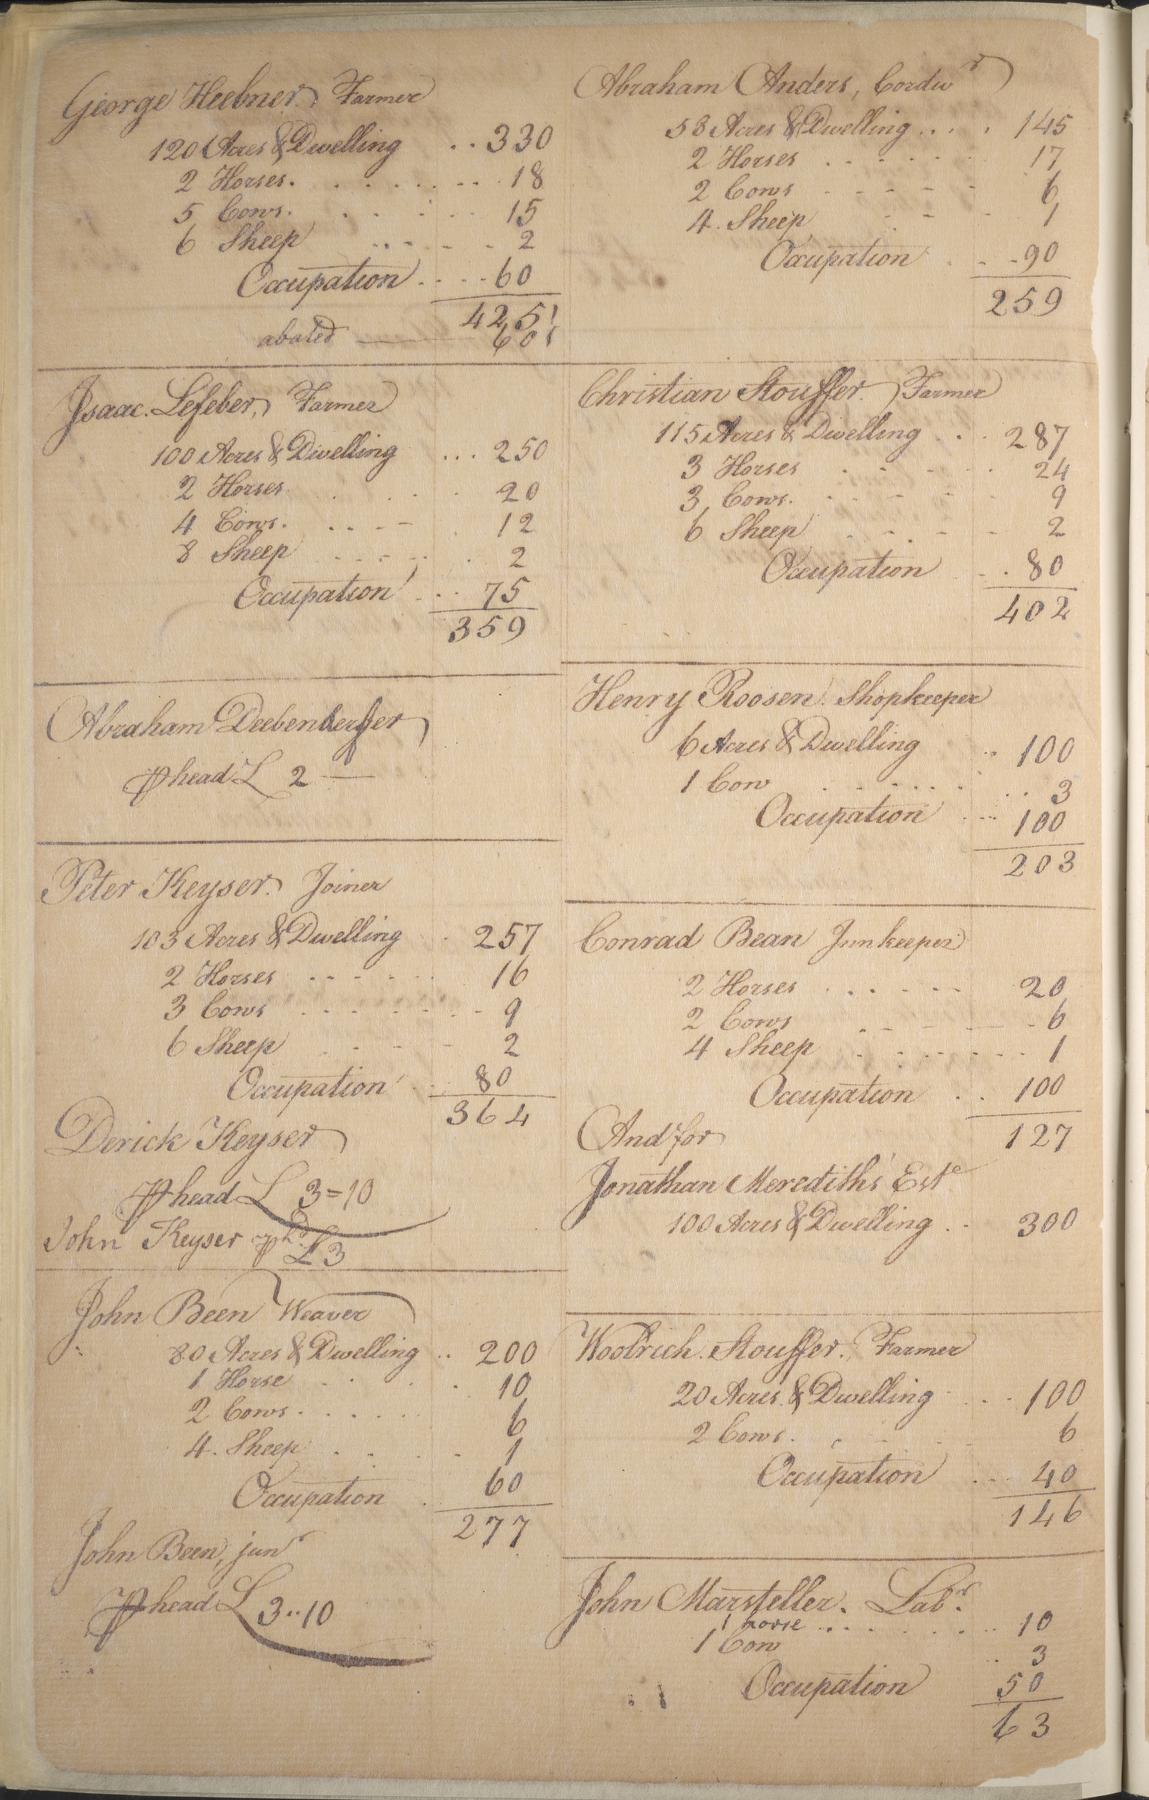 George Heebner, Farmer
120 Acres & Dwelling .. 330
2 Horses. 18
5 Cows. 15
6 Sheep 2
Occupation 60
425
abated 60
Isaac. Lefeber, Farmer
100 Acres & Dwelling ... 250
2 Horses 20
4 Cows. 12
8 Sheep 2
Occupation 75
359
Abraham
⅌ head £ 2 —
Peter Keyser. Joiner
103 Acres & Dwelling 257
2 Horses 16
3 Cows 9
6 Sheep 2
Occupation 80
364
Derick Keyser
⅌ head £ 3=10
John Keyser ⅌ hd £3
John Been Weaver
80 Acres & Dwelling .. 200
1 Horse 10
2 Cows 6
4. Sheep 1
Occupation 60
277
John Been, junr
⅌ head £ 3..10
Abraham Anders, Cordwr
53 Acres & Dwelling .... 145
2 Horses 17
2 Cows 6
4. Sheep 1
Occupation 90
259
Christian Stouffer. Farmer
115 Acres & Dwelling .. 287
3 Horses 24
3 Cows. 9
6 Sheep 2
Occupation 80
402
Henry Roosen. Shopkeeper
6 Acres & Dwelling .. 100
1 Cow 3
Occupation 100
203
Conrad Bean Innkeeper
2 Horses 20
2 Cows 6
4 Sheep 1
Occupation .. 100
127
And for
Jonathan Merediths Este
100 Acres & Dwelling .. 300
Woolrich. Stouffer. Farmer
20 Acres & Dwelling 100
2 Cows. 6
Occupation 40
146
John Marsteller. Labr.
1 horse 10
1 Cow 3
Occupation 50
63